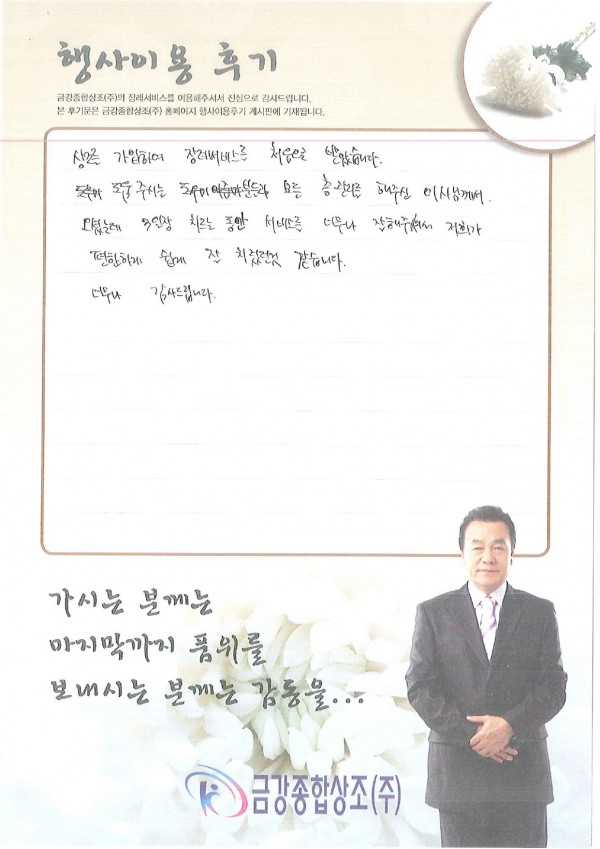 행사이용 후기
금강종합상조(주)의 장례서비스를 이용해주셔서 진심으로 감사드립니다.
본 후기문은 금강종합상조(주) 홈페이지 행사이용후기 게시판에 기재됩니다.
상조를 가입하여 장례서비스를 처음으로 받았습니다.
도움 주시는 모든 총관리를 해주신 이사님께서
3일장 치르는 동안 서비스를 너무나 잘해주셔서 저희가
편안하게 쉽게 잘 치렀던것 같습니다.
너무나 감사드립니다.
가시는 분께는
마지막까지 품위를
보내시는 분께는 감동을...
금강종합상조(주)